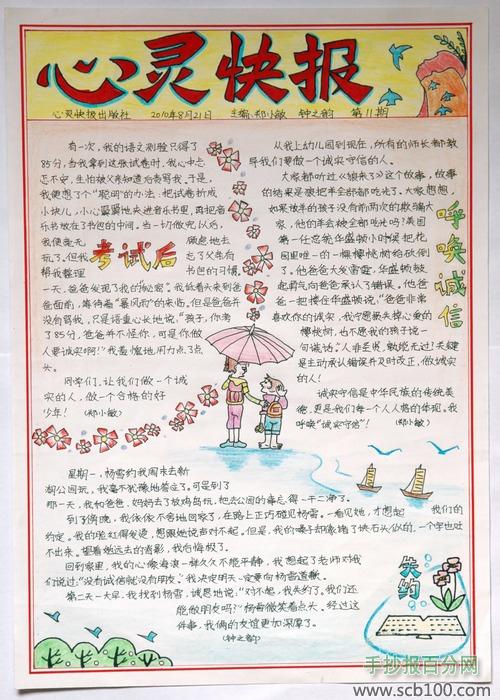 心灵快报
心灵快报出版社 2010年8月21日 主编:郑小敏 钟之韵 第11期
考试后
有一次，我的语文测验只得了
85分，当我拿到这张试卷时，我心中忐
忑不安，生怕被父亲知道后责骂我。于是，
我便想了个"聪明"的办法：把试卷折成
小块儿，小心翼翼地夹进音乐书里，再把音
乐书放在了书包的中间。当一切做完以后，
我便毫无顾忌地去
玩了。但我忘了父亲有
帮我整理书包的习惯，
一天，爸爸发现了我的秘密。我低着头来到爸
爸面前，等待着"暴风雨"的来临。但是爸爸并
没有骂我，只是语重心长地说："孩子，你考
了85分，爸爸并不怪你，可是你做
人要诚实啊！"我羞愧地用力点了点
头。
同学们，让我们做一个诚
实的人，做一个合格的好
少年！（郑小敏）
呼唤诚信
从我上幼儿园到现在，所有的师长都教
导我们要做一个诚实守信的人。
大家都听过《狼来了》这个故事，故事
的结果是狼把羊全部都吃光了。大家想想，
如果放羊的孩子没有前两次的欺骗大
家，他的羊会被全部吃光吗？美国
第一任总统华盛顿小时候把花
园里唯一的一棵樱桃树给砍倒
了。他爸爸大发雷霆，华盛顿鼓
起勇气向爸爸承认了错误。他爸
爸一把搂住华盛顿说："爸爸非常
喜欢你的诚实，我宁愿损失掉心爱的
樱桃树，也不愿我的孩子说一
句谎话。"人非圣贤，孰能无过？关键
是主动承认错误并及时改正，做诚实
的人！
诚实守信是中华民族的传统美
德，更是我们每个人人格的体现。我
呼唤"诚实守信"！（郑小敏）
失约
星期一，杨雪约我周末去新
湖公园玩，我毫不犹豫地答应了。可是到了
那一天，我和爸爸、妈妈去了放鸡岛玩，把去公园的事忘得一干二净了。
到了傍晚，我依依不舍地回家了，在路上正巧碰见杨雪。一看见她，才想起我们的
约定。我的脸红得发烫，想跟她说声对不起。但是，我的嗓子却像堵了块石头似的，一个字也吐
不出来。望着她远去的背影，我后悔极了。
回到家里，我的心像海浪一样久久不能平静，我想起了老师对我
们说过："没有诚信就没有朋友。"我决定明天一定要向杨雪道歉。
第二天一大早，我找到杨雪，诚恳地说："对不起，我失约了。我们还
能做朋友吗？"杨雪微笑着点头。经过这
件事，我俩的友谊更加深厚了。
（钟之韵）
手抄报百分网
www.scb100.com